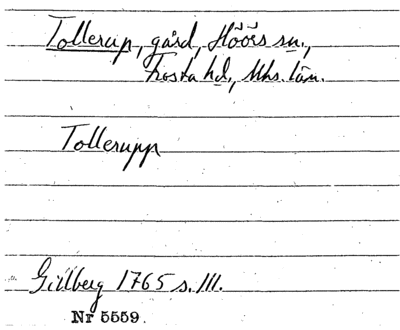 Tollerup, gård, Höörs sn.,
Frosta hd., Mhs. län.
Tollerupp
Gillberg 1765 s. 111.
Nr 5559.